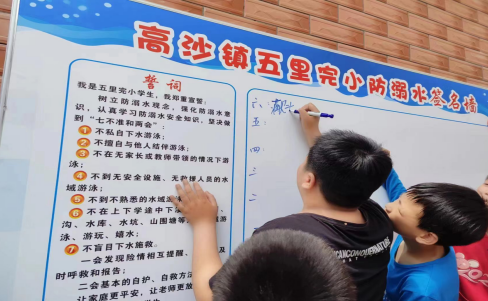 高沙镇五里完小防溺水签名墙
誓词
我是五里完小学生，我郑重宣誓：
树立防溺水观念，强化防溺水意
识，认真学习防溺水安全知识，坚决做
到“七不准和两会”：
1 不私自下水游泳；
2 不擅自与他人结伴游泳；
3 不在无家长或教师带领的情况下游
泳；
4 不到无安全设施、无救援人员的水
域游泳；
5 不到不熟悉的水域
6 不在上下学途中下
沟、水库、水坑、山围塘等
泳、游玩、嬉水；
7 不盲目下水施救。
一会发现险情相互提醒、
时呼救和报告；
二会基本的自护、自救方法
让家庭更平安，让老师更放
六：
五：
四：
三
二